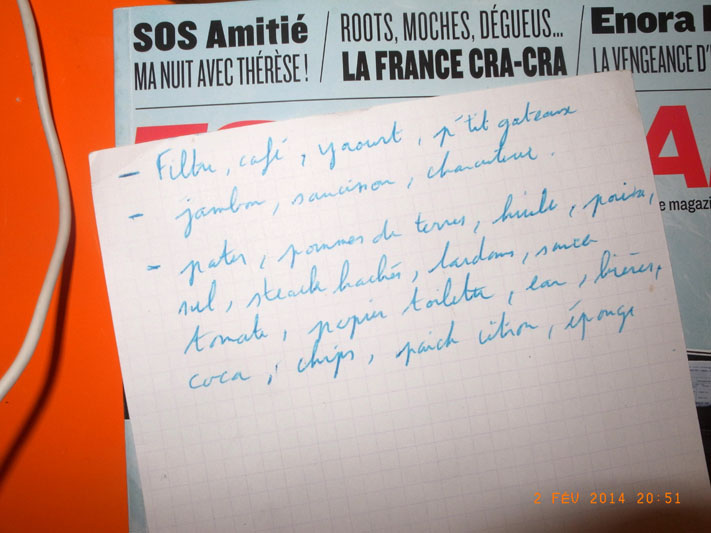 SOS Amitié
MA NUIT AVEC THÉRÈSE !
ROOTS, MOCHES, DÉGUEUS...
LA FRANCE CRA-CRA
Enora
LA VENGEANCE D'
e magazi
- Filtre, café, yaourt, p'tit gateaux
- jambon, saucisson, charcuterie.
- pates, pommes de terres, huile, poivre,
sel, steack hachés, lardons, sauce
tomate, papier toilette, eau, bières,
coca, chips, citron, éponge
2 FÉV 2014 20:51